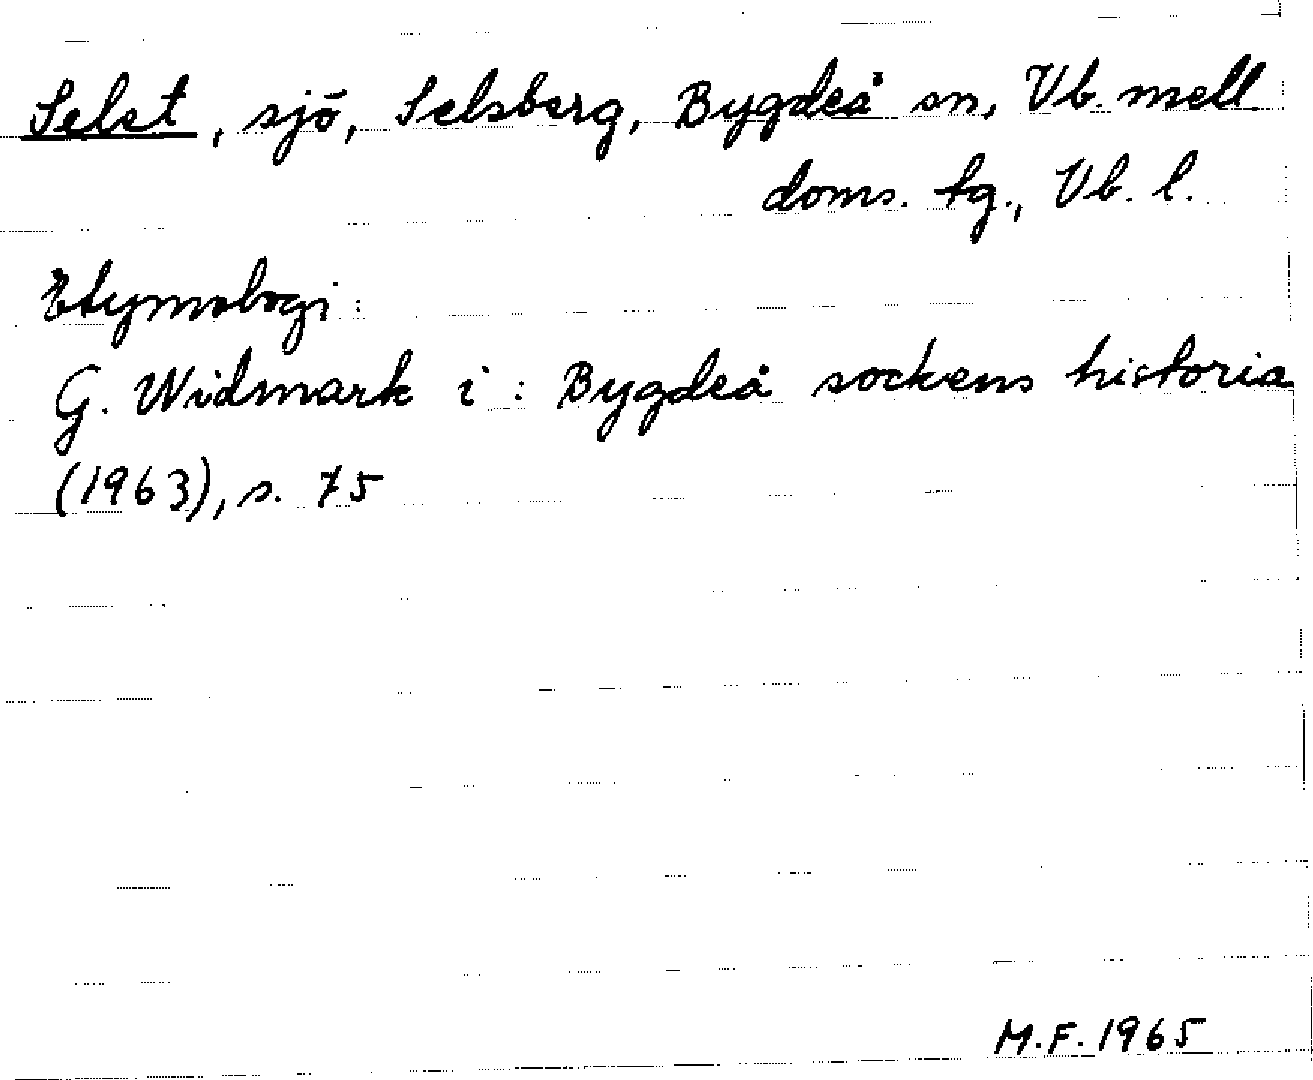 Selet, sjö, Selsberg, Bygdeå sn, Vb. mell
doms. tg., Vb. l.
Etymologi:
G. Widmark i: Bygdeå sockens historia
(1963), s. 75
M.F. 1965